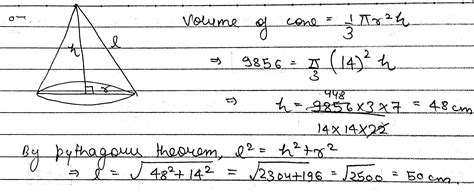 Volume of cone = 1/3 πr²h
h
l
r
⇒ 9856 = π/3 (14)² h
⇒ h = 448 9856×3×7 / 14×14×22 = 48 cm
By pythagorus theorem, l² = h²+r²
⇒ l = √48²+14² = √2304+196 = √2500 = 50 cm.